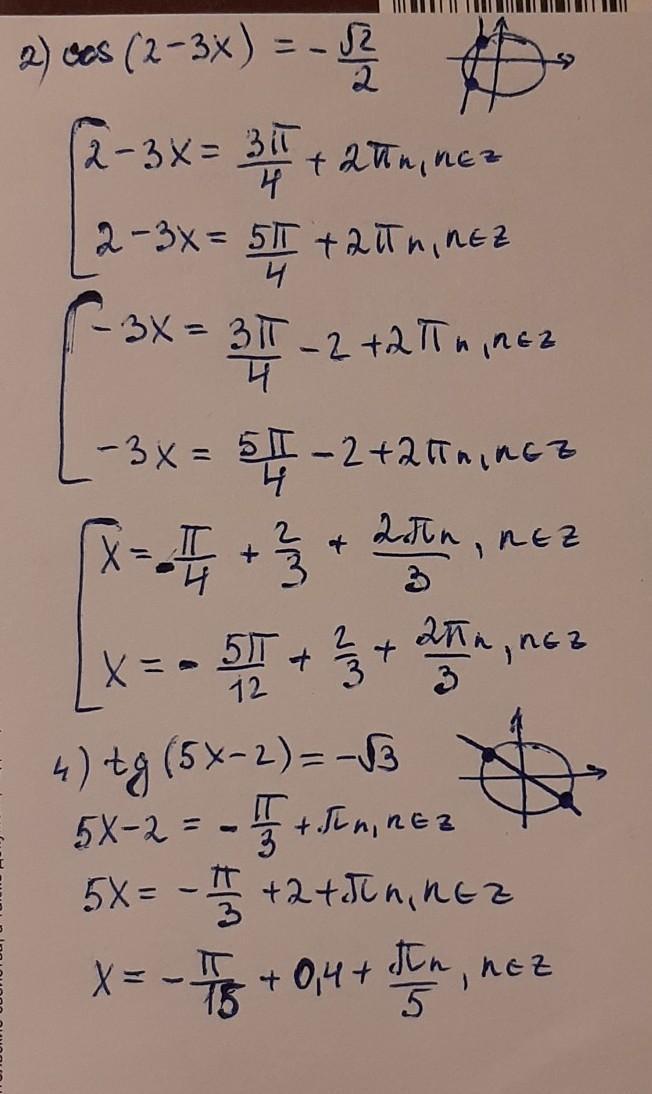 2) cos (2-3x) = -√2/2
2-3x = 3π/4 + 2πn, n∈z
2-3x = 5π/4 + 2πn, n∈z
-3x = 3π/4 - 2 + 2πn, n∈z
-3x = 5π/4 - 2 + 2πn, n∈z
x = -π/4 + 2/3 + 2πn/3, n∈z
x = - 5π/12 + 2/3 + 2πn/3, n∈z
4) tg (5x-2) = -√3
5x-2 = - π/3 + πn, n∈z
5x = - π/3 + 2 + πn, n∈z
x = - π/15 + 0,4 + πn/5, n∈z